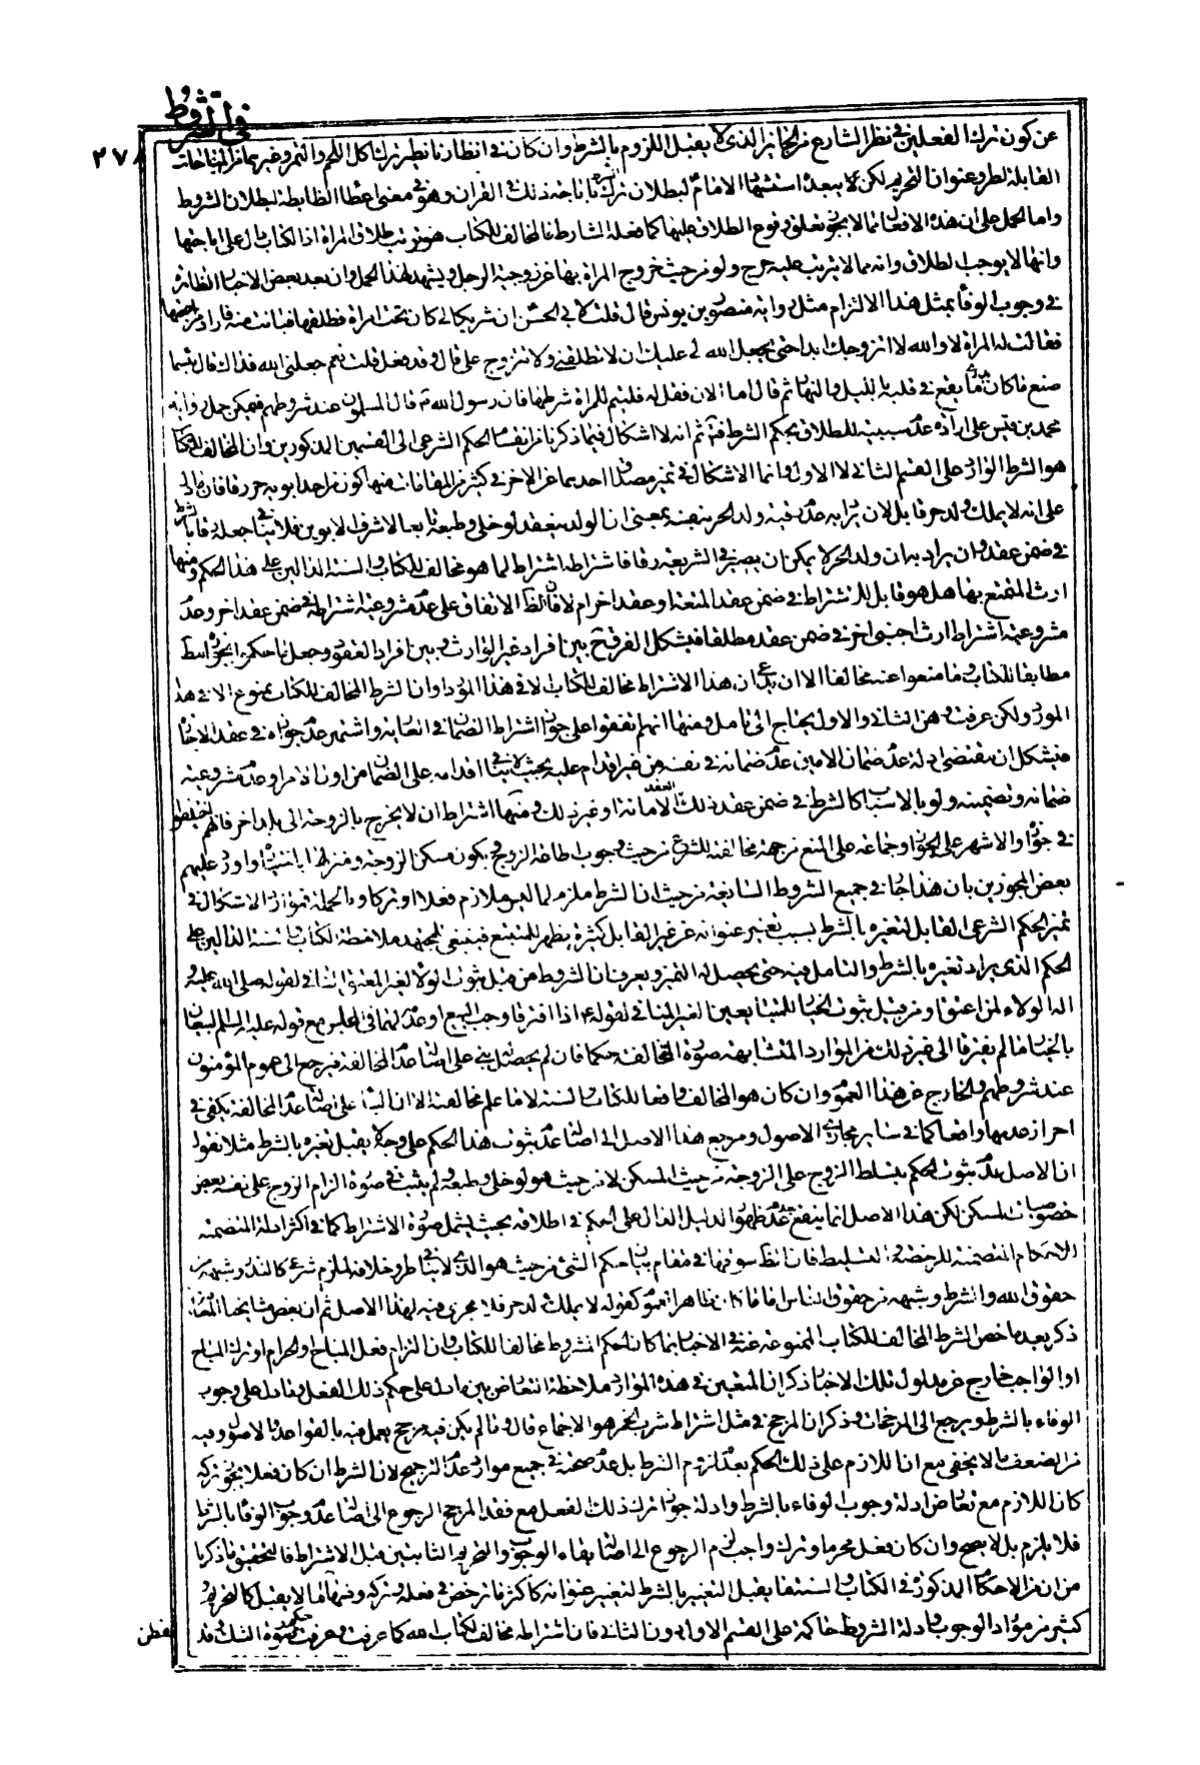 في الشروط
٢٧٨
عن كون ترك الفعلين في نظر الشارع من الجائز الذي لا يقبل اللزوم بالشرط وان كان في انظارنا نظير ترك اكل اللحم والتمر وغيرهما من المباحات
القابلة لطرو عنوان التحريم لكن لا يبعد استشهاد الامام لبطلان الشرط باباحة ذلك في القران وهو في معنى اعطاء الضابطة لبطلان الشروط
واما الحمل على ان هذه الافعال مما لا يجوز تعلق وقوع الطلاق عليها كما فعله الشارط فالمخالف للكتاب هو ترتب طلاق المراة اذ الكتاب دال على اباحتها
وانها لا يوجب الطلاق وانه مما لا يترتب عليه حرج ولو من حيث خروج المراة بها عن زوجية الرجل ويشهد لهذا الحمل وان بعد بعض الاخبار الظاهرة
في وجوب الوفاء بمثل هذا الالتزام مثل رواية منصور بن يونس قال قلت لابي الحسن ان شريكا لي كان تحته امراة فطلقها فبانت منه فاراد مراجعتها
فقالت له المراة لا والله لا اتزوجك ابدا حتى يجعل الله لي عليك ان لا تطلقني ولا تتزوج علي قال وقد فعل قلت نعم جعلني الله فداك قال بئسما
صنع ما كان يدري ما يقع في قلبه بالليل والنهار ثم قال اما الان فقل له فليتم للمراة شرطها فان رسول الله قال المسلمون عند شروطهم فيمكن حمل رواية
محمد بن قيس على ارادة عدم سببيته للطلاق بحكم الشرط فتأمل ثم انه لا اشكال فيما ذكرنا من انقسام الحكم الشرعي الى القسمين المذكورين وان المخالف للكتاب
هو الشرط الوارد على القسم الثاني لا الاول وانما الاشكال في تميز مصداق احدهما عن الاخر في كثير من المقامات منها كون من احد ابويه حر رقا فان ما دل
على انه لا يملك ولد حر قابل لان يراد به عدم رقية ولد الحر بنفسه بمعنى ان الولد ينعقد لو خلي وطبعه تابعا لاشرف الابوين فلا ينافي جعله رقا بالشرط
في ضمن عقد وان يراد به ان ولد الحر لا يمكن ان يصير في الشريعة رقا فاشتراطه اشتراط لما هو مخالف للكتاب والسنة الدالين على هذا الحكم ومنها
ارث المتمتع بها هل هو قابل للاشتراط في ضمن عقد المتعة او عقد اخر ام لا فان الظاهر الاتفاق على عدم مشروعية اشتراطه في ضمن عقد اخر وعدم
مشروعية اشتراط ارث اجنبي اخر في ضمن عقد مطلقا فيشكل الفرق بين افراد غير الوارث وبين افراد العقود وجعل ما حكموا بجوازه
مطابقا للكتاب وما منعوا عنه مخالفا الا ان يدعى ان هذا الاشتراط مخالف للكتاب الا في هذا المورد وان الشرط المخالف للكتاب ممنوع الا في هذا
المورد ولكن عرفت وهن الثاني والاول يحتاج الى تامل ومنها انهم اتفقوا على جواز اشتراط الضمان في العارية واشتهر عدم جوازه في عقد الاجارة
فيشكل ان مقتضى ادلة عدم ضمان الامين عدم ضمانه في نفسه من غير اقدام عليه بحيث لا ينافي اقدامه على الضمان من اول الامر او عدم مشروعية
ضمانه وتضمينه ولو بالاسباب كالشرط في ضمن عقد ذلك الامانة او غير ذلك ومنها اشتراط ان لا يخرج بالزوجة الى بلد اخر فانهم اختلفوا
في جوازه والاشهر على الجواز وجماعة على المنع من جهة مخالفته للشرع من حيث وجوب اطاعة الزوج وكون مسكن الزوجة ومنزلها باختياره واورد عليهم
بعض المجوزين بان هذا جار في جميع الشروط السائغة من حيث ان الشرط ملزم لما ليس بلازم فعلا او تركا وبالجملة فموارد الاشكال في
تميز الحكم الشرعي القابل لتغيره بالشرط بسبب تغيير عنوانه عن غير القابل كثيرة يظهر للمتتبع فينبغي للمجتهد ملاحظة الكتاب والسنة الدالين على
الحكم الذي يراد تغيره بالشرط والتامل فيه حتى يحصل له التميز ويعرف ان الشروط من قبيل ثبوت الولاء لغير المعتق المنافي لقوله صلى الله عليه و
اله الولاء لمن اعتق او من قبيل ثبوت الخيار للمتبايعين الغير المنافي لقوله ع اذا افترقا وجب البيع او عدمه لهما في المجلس مع قوله عليه السلم البيعان
بالخيار ما لم يفترقا الى غير ذلك من الموارد المتشابهة صورة المخالفة حكما فان لم يحصل بنى على اصالة عدم المخالفة فيرجع الى عموم المؤمنون
عند شروطهم والخارج عن هذا العموم وان كان هو المخالف واقعا للكتاب والسنة لا ما علم مخالفته الا ان البناء على اصالة عدم المخالفة يكفي في
احراز عدمها واقعا كما في سائر مجاري الاصول ومرجع هذا الاصل الى اصالة عدم ثبوت هذا الحكم على وجه لا يقبل تغيره بالشرط مثلا نقول
ان الاصل عدم ثبوت الحكم بتسلط الزوج على الزوجة من حيث المسكن لا من حيث هو لو خلي وطبعه ولم يثبت في صورة الزام الزوج على نفسه بعض
خصوصيات المسكن لكن هذا الاصل انما ينفع مع عدم ظهور الدليل الدال على الحكم في اطلاقه بحيث يشمل صورة الاشتراط كما في اكثر الادلة المتضمنة
للاحكام المتضمنة للرخصة والتسليط فان الظاهر سوقها في مقام بيان حكم الشئ من حيث هو الذي لا ينافي طرو خلافه لملزم شرعي كالنذر وشبهه من
حقوق الله والشرط وشبهه من حقوق الناس اما ما كان ظاهره العموم كقوله لا يملك ولد حر فلا مجرى فيه لهذا الاصل ثم ان بعض مشايخنا المعاصرين
ذكر بعد ما خص الشرط المخالف للكتاب الممنوع عنه في الاخبار بما كان الحكم المشروط مخالفا للكتاب وان التزام فعل المباح او الحرام او ترك المباح
او الواجب خارج عن مدلول تلك الاخبار ذكر ان المتعين في هذه الموارد ملاحظة التعارض بين ما دل على حكم ذلك الفعل وما دل على وجوب
الوفاء بالشرط ويرجع الى المرجحات وذكر ان المرجح في مثل اشتراط شرب الخمر هو الاجماع قال وما لم يكن فيه مرجح يعمل فيه بالقواعد والاصول وفيه
من الضعف ما لا يخفى مع ان اللازم على ذلك الحكم بعدم لزوم الشرط بل عدم صحته في جميع موارد عدم الترجيح لان الشرط ان كان فعلا يجوز تركه
كان اللازم مع تعارض ادلة وجوب الوفاء بالشرط وادلة جواز ترك ذلك الفعل مع فقد المرجح الرجوع الى اصالة عدم وجوب الوفاء بالشرط
فلا يلزم بل لا يصح وان كان فعل محرم او ترك واجب لزم الرجوع الى اصالة بقاء الوجوب والتحريم الثابتين قبل الاشتراط فالتحقيق ما ذكرنا
من ان من الاحكام المذكورة في الكتاب والسنة ما يقبل التغيير بالشرط لتغيير عنوانه كاكثر ما رخص في فعله وتركه ومنها ما لا يقبله كالتحريم و
كثير من موارد الوجوب وادلة الشروط حاكمة على القسم الاول دون الثاني فان اشتراطه مخالف لكتاب الله كما عرفت وعرفت حكم صورة الشك وقد
تفطن